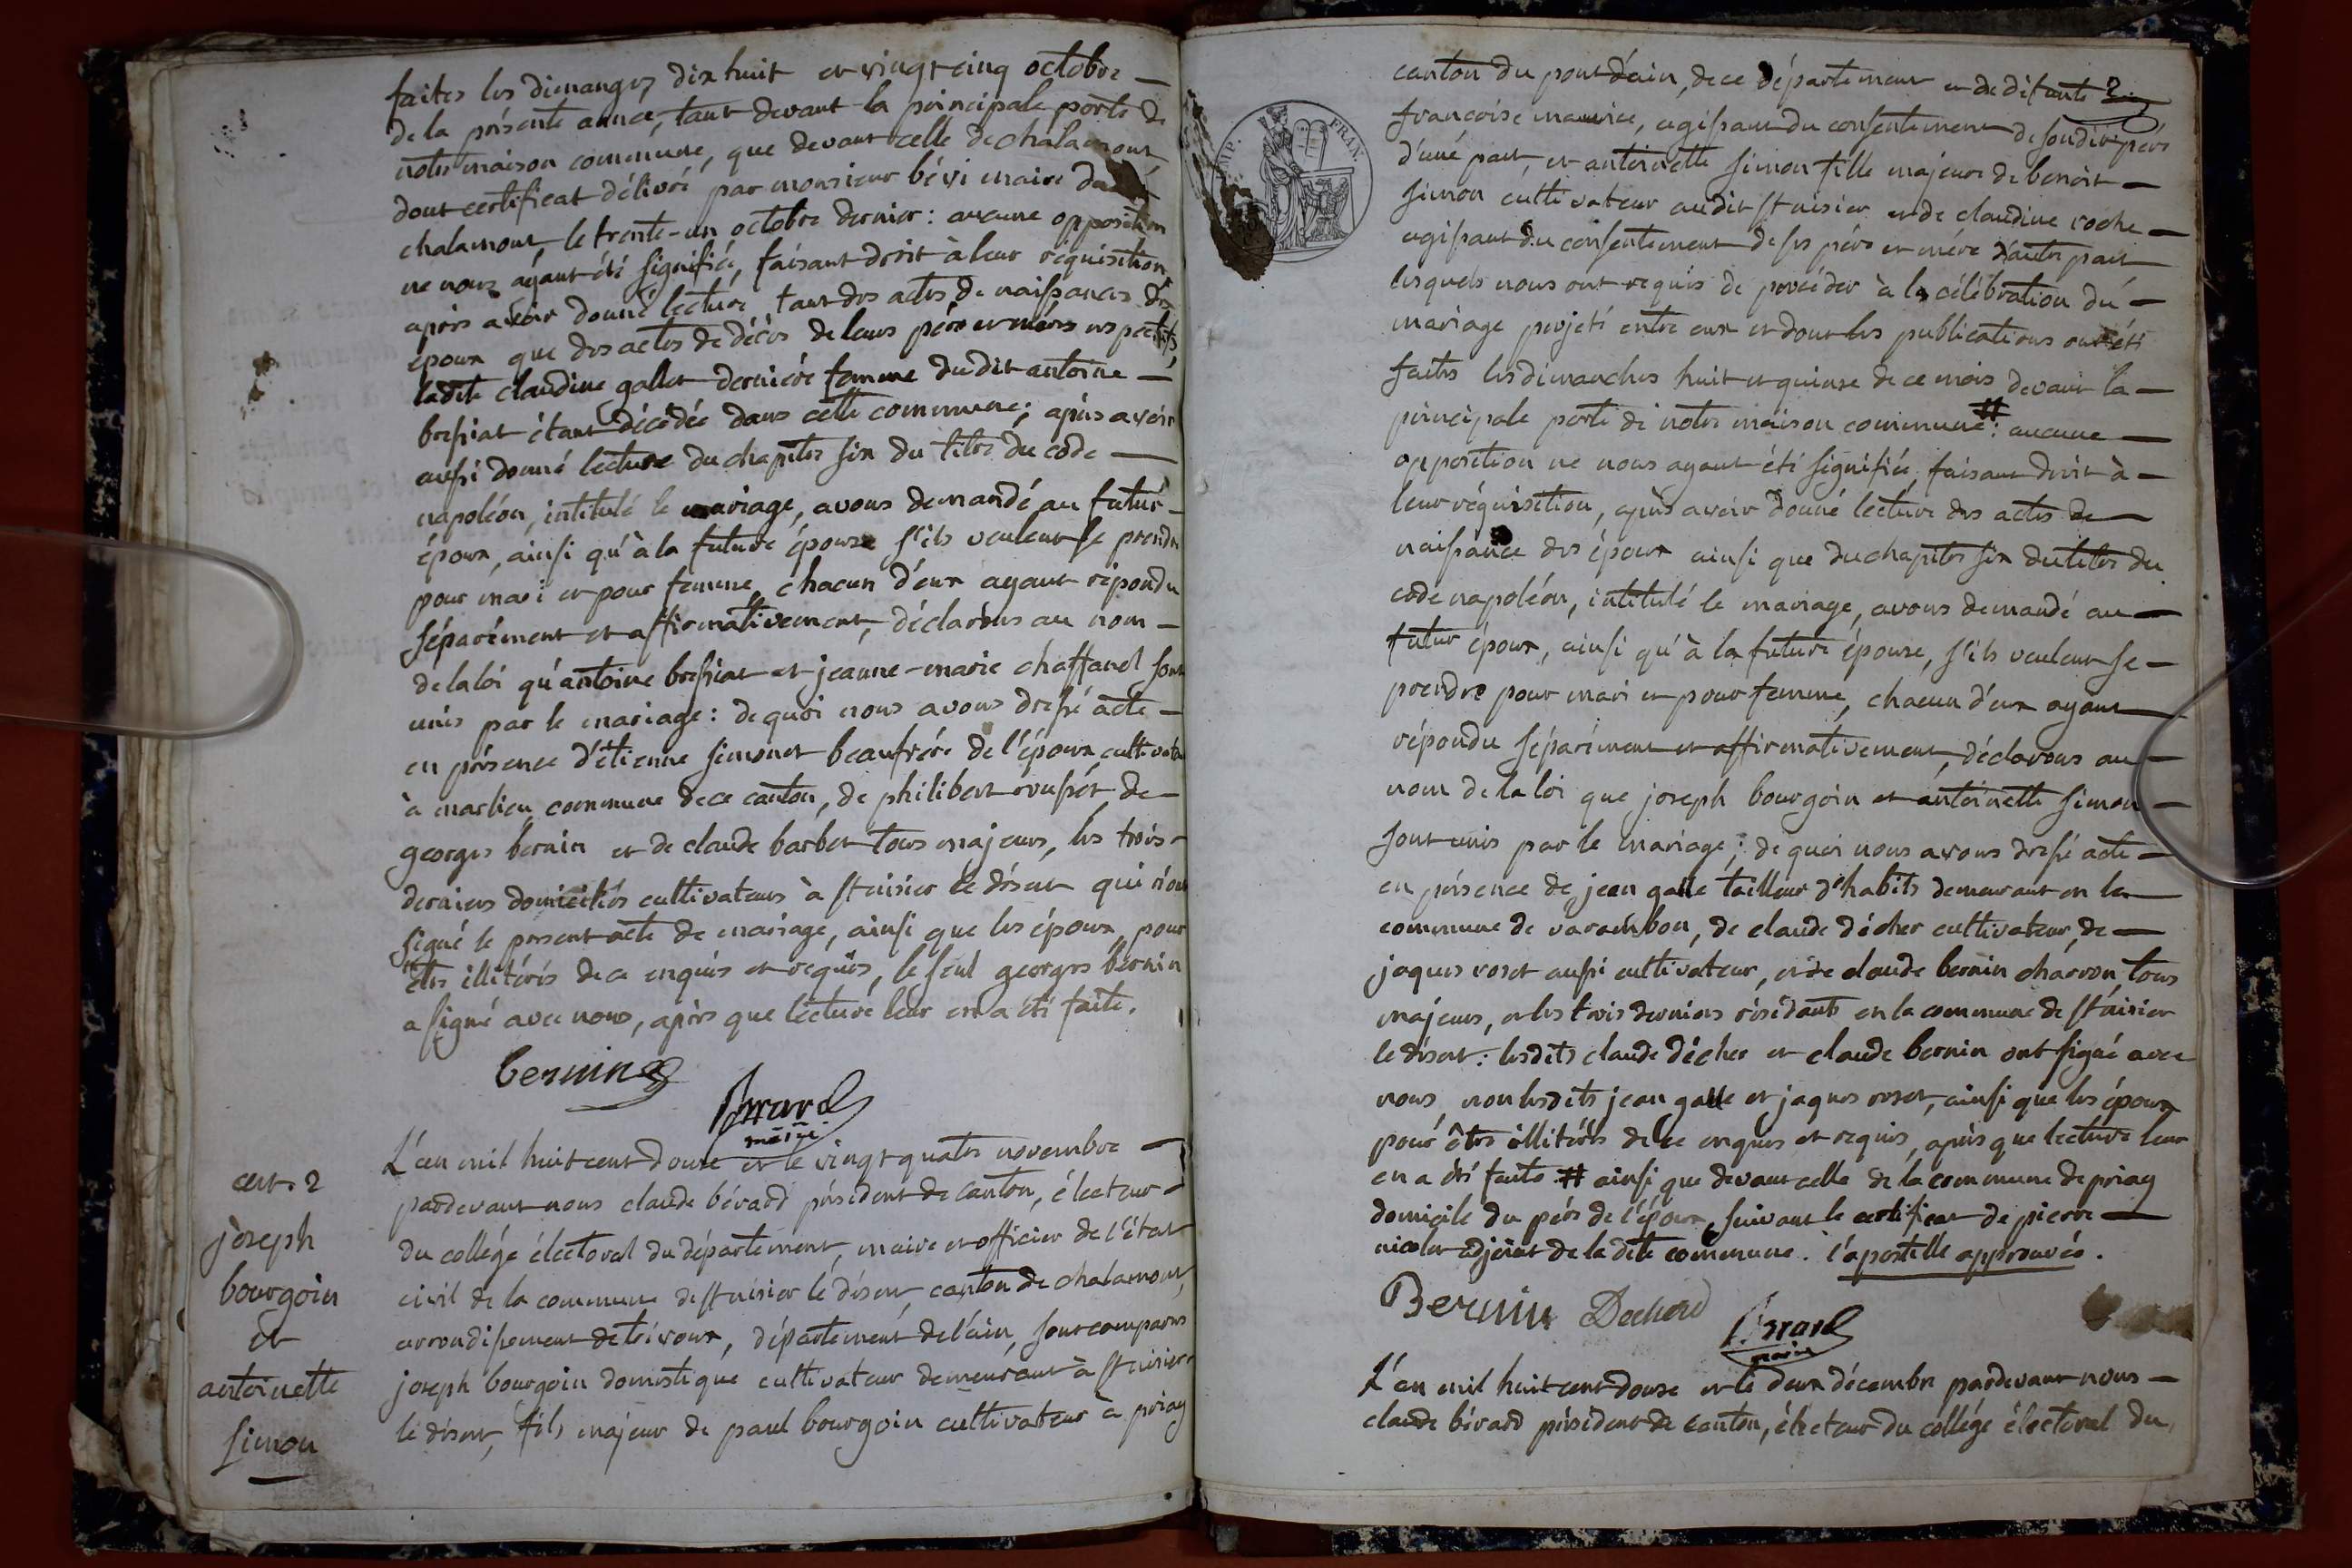 faites les dimanges dix huit et vingt cinq octobre
de la présente année, tant devant la principale porte de
notre maison commune, que devant celle de chalamont
dont certificat délivré par monsieur bévi maire dudit
chalamont, le trente-un octobre dernier : aucune opposition
ne nous ayant été signifiée, faisant droit à leur réquisition,
après avoir donné lecture, tant des actes de naissances des
époux que des actes de décès de leurs père et mères respectifs,
ladite claudine gallet dernière femme dudit antoine
bressiat étant décédée dans cette commune ; après avoir
aussi donné lecture du chapitre six du titre du code
napoléon, intitulé le mariage, avons demandé au futur
époux, ainsi qu'à la future épouse s'ils veulent se prendre
pour mari et pour femme, chacun d'eux ayant répondu
séparément et affirmativement, déclarons au nom
de la loi qu'antoine bressiat et jeanne-marie chaffanel sont
unis par le mariage : de quoi nous avons dressé acte
en présence d'étienne simonet beaufrère de l'époux cultivateur
à marlieu commune de ce canton, de philibert rousset de
georges bernin et de claude barbet tous majeurs, les trois
derniers domiciliés cultivateurs à st nisier le désert qui n'ont
signé le present acte de mariage, ainsi que les époux, pour
être illitérés de ce enquis et requis, le seul georges bernin
a signé avec nous, après que lecture leur en a été faite.
bernin
Berard
maire
L'an mil huit cent douze et le vingt quatre novembre
pardevant nous claude bérard président de canton, électeur
du collége électoral du département, maire et officier de l'état
civil de la commune de st nisier le désert, canton de chalamont,
arrondissement de trévoux, département de l'ain, sont comparus
joseph bourgoin domestique cultivateur demeurant à st nisier
le désert, fils majeur de paul bourgoin cultivateur à priay
acte. 2
joseph
bourgoin
et
antoinette
simon
IMP. FRAN.
canton du pont d'ain, de ce département et de défunte
francoise maurice, agissant du consentement de son dit père
d'une part, et antoinette simon fille majeure de benoit
simon cultivateur audit st nisier et de claudine roche
agissant du consentement de ses père et mère d'autre part
lesquels nous ont requis de procéder à la célébration du
mariage projeté entre eux et dont les publications ont été
faites les dimanches huit et quinze de ce mois devant la
principale porte de notre maison commune # : aucune
opposition ne nous ayant été signifiée, faisant droit à
leur réquisition, après avoir donné lecture des actes de
naissance des époux ainsi que du chapitre six du titre du
code napoléon, intitulé le mariage, avons demandé au
futur époux, ainsi qu'à la future épouse, s'ils veulent se
prendre pour mari et pour femme, chacun d'eux ayant
répondu séparément et affirmativement, déclarons au
nom de la loi que joseph bourgoin et antoinette simon
sont unis par le mariage ; de quoi nous avons dressé acte
en présence de jean galle tailleur d'habits demeurant en la
commune de varambon, de claude décher cultivateur, de
jaques roset aussi cultivateur, et de claude bernin charron, tous
majeurs, et les trois derniers résidants en la commune de st nisier
le désert : lesdits claude décher et claude bernin ont signé avec
nous, non lesdits jean galle et jaques roset, ainsi que les époux
pour être illitérés de ce enquis et requis, après que lecture leur
en a été faite # ainsi que devant celle de la commune de priay
domicile du père de l'époux, suivant le certificat de pierre
nicolet adjoint de la dite commune. l'apostille approuvée.
Bernin Decherd
Berard
maire
L'an mil huit cent douze et le deux décembre pardevant nous
claude bérard président de canton, électeur du collége électoral du